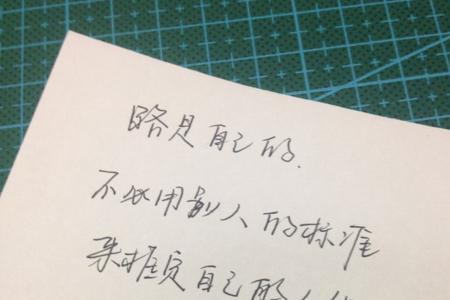 路是自己的.
不必用别人的标准
来框定自己的人